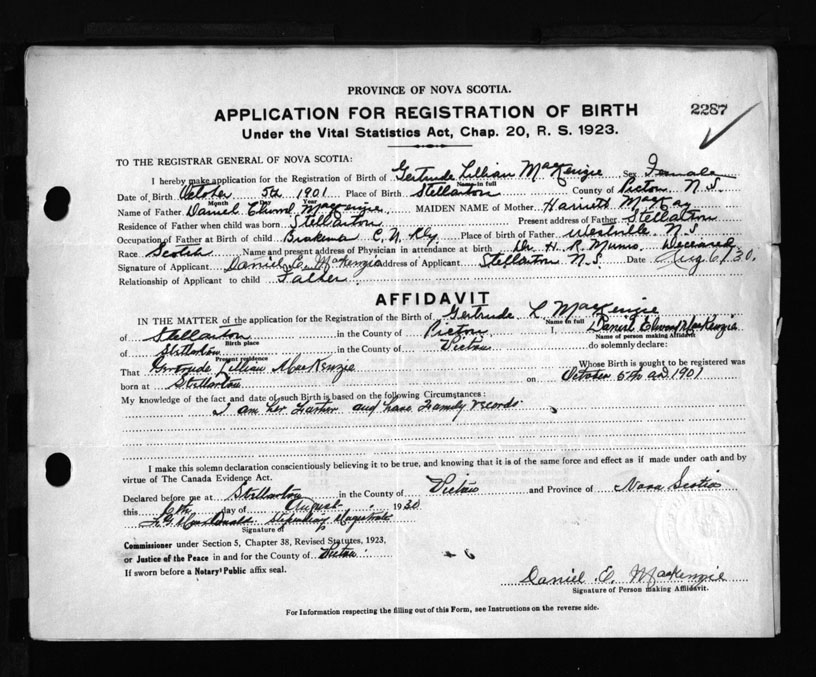 PROVINCE OF NOVA SCOTIA.
APPLICATION FOR REGISTRATION OF BIRTH
2287
Under the Vital Statistics Act, Chap. 20, R. S. 1923.
TO THE REGISTRAR GENERAL OF NOVA SCOTIA:
I hereby make application for the Registration of Birth of Gertrude Lillian MacKenzie Sex Female
Name in full
Date of Birth October 5th 1901 Place of Birth Stellarton County of Pictou N.S.
Month Day Year
Name of Father Daniel Elwood MacKenzie MAIDEN NAME of Mother Harriett MacKay
Residence of Father when child was born Stellarton Present address of Father Stellarton
Occupation of Father at Birth of child Brakeman C. N. Rly Place of Birth of father Westville N.S
Race Scotch Name and present address of Physician in attendance at birth Dr. H. R. Munro. Deceased
Signature of Applicant Daniel E MacKenzie Address of Applicant Stellarton N.S. Date Aug 6/30.
Relationship of Applicant to child Father
AFFIDAVIT
IN THE MATTER of the application for the Registration of the Birth of Gertrude L. MacKenzie
Name in full
of Stellarton in the County of Pictou I, Daniel Elwood MacKenzie
Birth place Name of person making Affidavit
of Stellarton in the County of Pictou do solemnly declare:
Present residence
That Gertrude Lillian MacKenzie Whose Birth is sought to be registered was
born at Stellarton on October 5th AD 1901
My knowledge of the fact and date of such Birth is based on the following Circumstances:
I am her Father and have Family records
I make this solemn declaration conscientiously believing it to be true, and knowing that it is of the same force and effect as if made under oath and by
virtue of The Canada Evidence Act.
Declared before me at Stellarton in the County of Pictou and Province of Nova Scotia
this 6th day of August 1930
MacDonald Stipendiary Magistrate
Signature of
Commissioner under Section 5, Chapter 38, Revised Statutes, 1923,
or Justice of the Peace in and for the County of Pictou
If sworn before a Notary Public affix seal.
Daniel E. MacKenzie
Signature of Person making Affidavit.
For Information respecting the filling out of this Form, see Instructions on the reverse side.